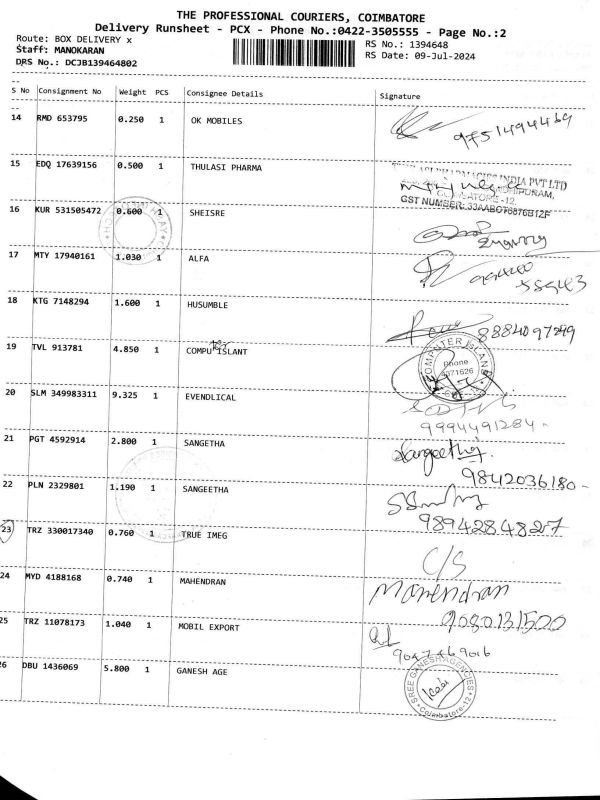 THE PROFESSIONAL COURIERS, COIMBATORE
Delivery Runsheet - PCX - Phone No.:0422-3505555 - Page No.:2
Route: BOX DELIVERY x RS No.: 1394648
Staff: MANOKARAN RS Date: 09-Jul-2024
DRS No.: DCJB139464802
S No Consignment No Weight PCS Consignee Details Signature
14 RMD 653795 0.250 1 OK MOBILES 9751494469
15 EDQ 17639156 0.500 1 THULASI PHARMA
INDIA PVT LTD
COIMBATORE -12.
GST NUMBER:
16 KUR 531505472 0.600 1 SHEISRE
17 MTY 17940161 1.030 1 ALFA
18 KTG 7148294 1.600 1 HUSUMBLE 8884097299
19 TVL 913781 4.850 1 COMPU ISLANT
COMPUTER ISLAND
Phone
20 SLM 349983311 9.325 1 EVENDLICAL
9994491284-
21 PGT 4592914 2.800 1 SANGETHA Sangeetha.
9842036180-
22 PLN 2329801 1.190 1 SANGEETHA
9894284827
23 TRZ 330017340 0.760 1 TRUE IMEG C/S
24 MYD 4188168 0.740 1 MAHENDRAN Mahendran
9080131500
25 TRZ 11078173 1.040 1 MOBIL EXPORT
9047469016
26 DBU 1436069 5.800 1 GANESH AGE
SREE GANESH AGENCIES
Coimbatore-12